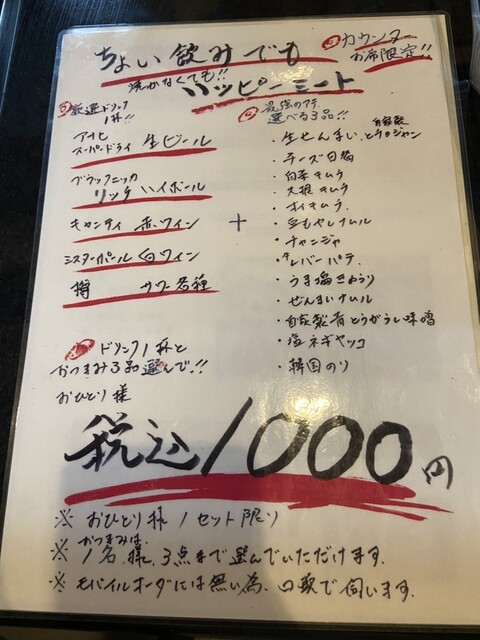 ちょい飲みでも
焼かなくても!!
ハッピーミート
カウンター
お席限定!!
厳選ドリンク
1杯!!
アサヒ
スーパードライ 生ビール
ブラックニッカ
リッチハイボール
キャンティ 赤ワイン
ミスターポール 白ワイン
樽 サワー各種
+
最強のアテ
選べる3品!!
・生せんまい、とうロジャン
自家製
・チーズ
・白菜キムチ
・大根キムチ
・オイキムチ
・豆もやしナムル
・チャンジャ
・レバーパテ
・うま塩きゅうり
・ぜんまいナムル
・自家製青とうがらし味噌
・塩ネギヤッコ
・韓国のり
ドリンク1杯と
おつまみ3品選んで!!
おひとり様
税込1000円
※おひとり様1セット限り
※おつまみは、
1名様、3点まで選んでいただけます。
※モバイルオーダーには無い為、口頭で伺います。